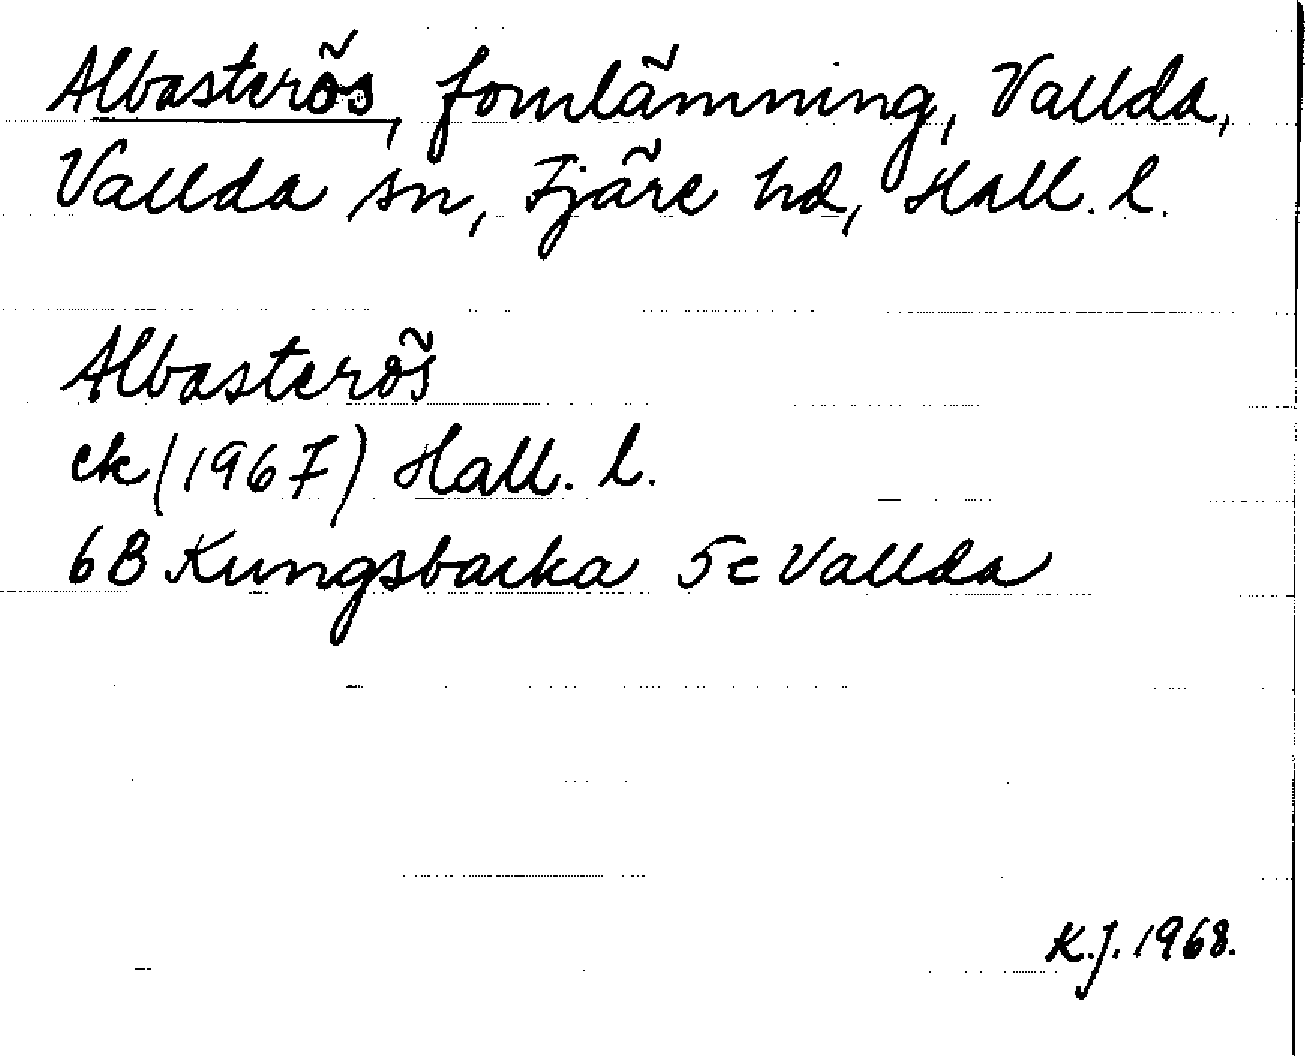 Albasterös, fornlämning, Vallda,
Vallda sn, Fjäre hd, Hall. l.
Albasterös
ek (1967) Hall. l.
6B Kungsbacka 5c Vallda
K.J. 1968.